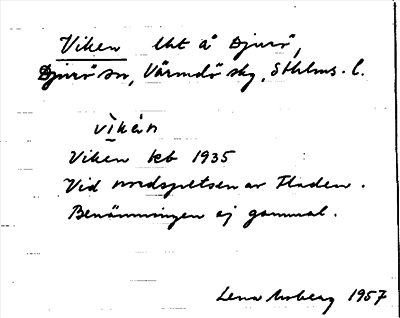 Viken lht å Djurö,
Djurö sn, Värmdö skg, Sthlms. l.
vìkén
Viken kb 1935
Vid nordspetsen av Fladen.
Benämningen ej gammal.
Lena Moberg 1957